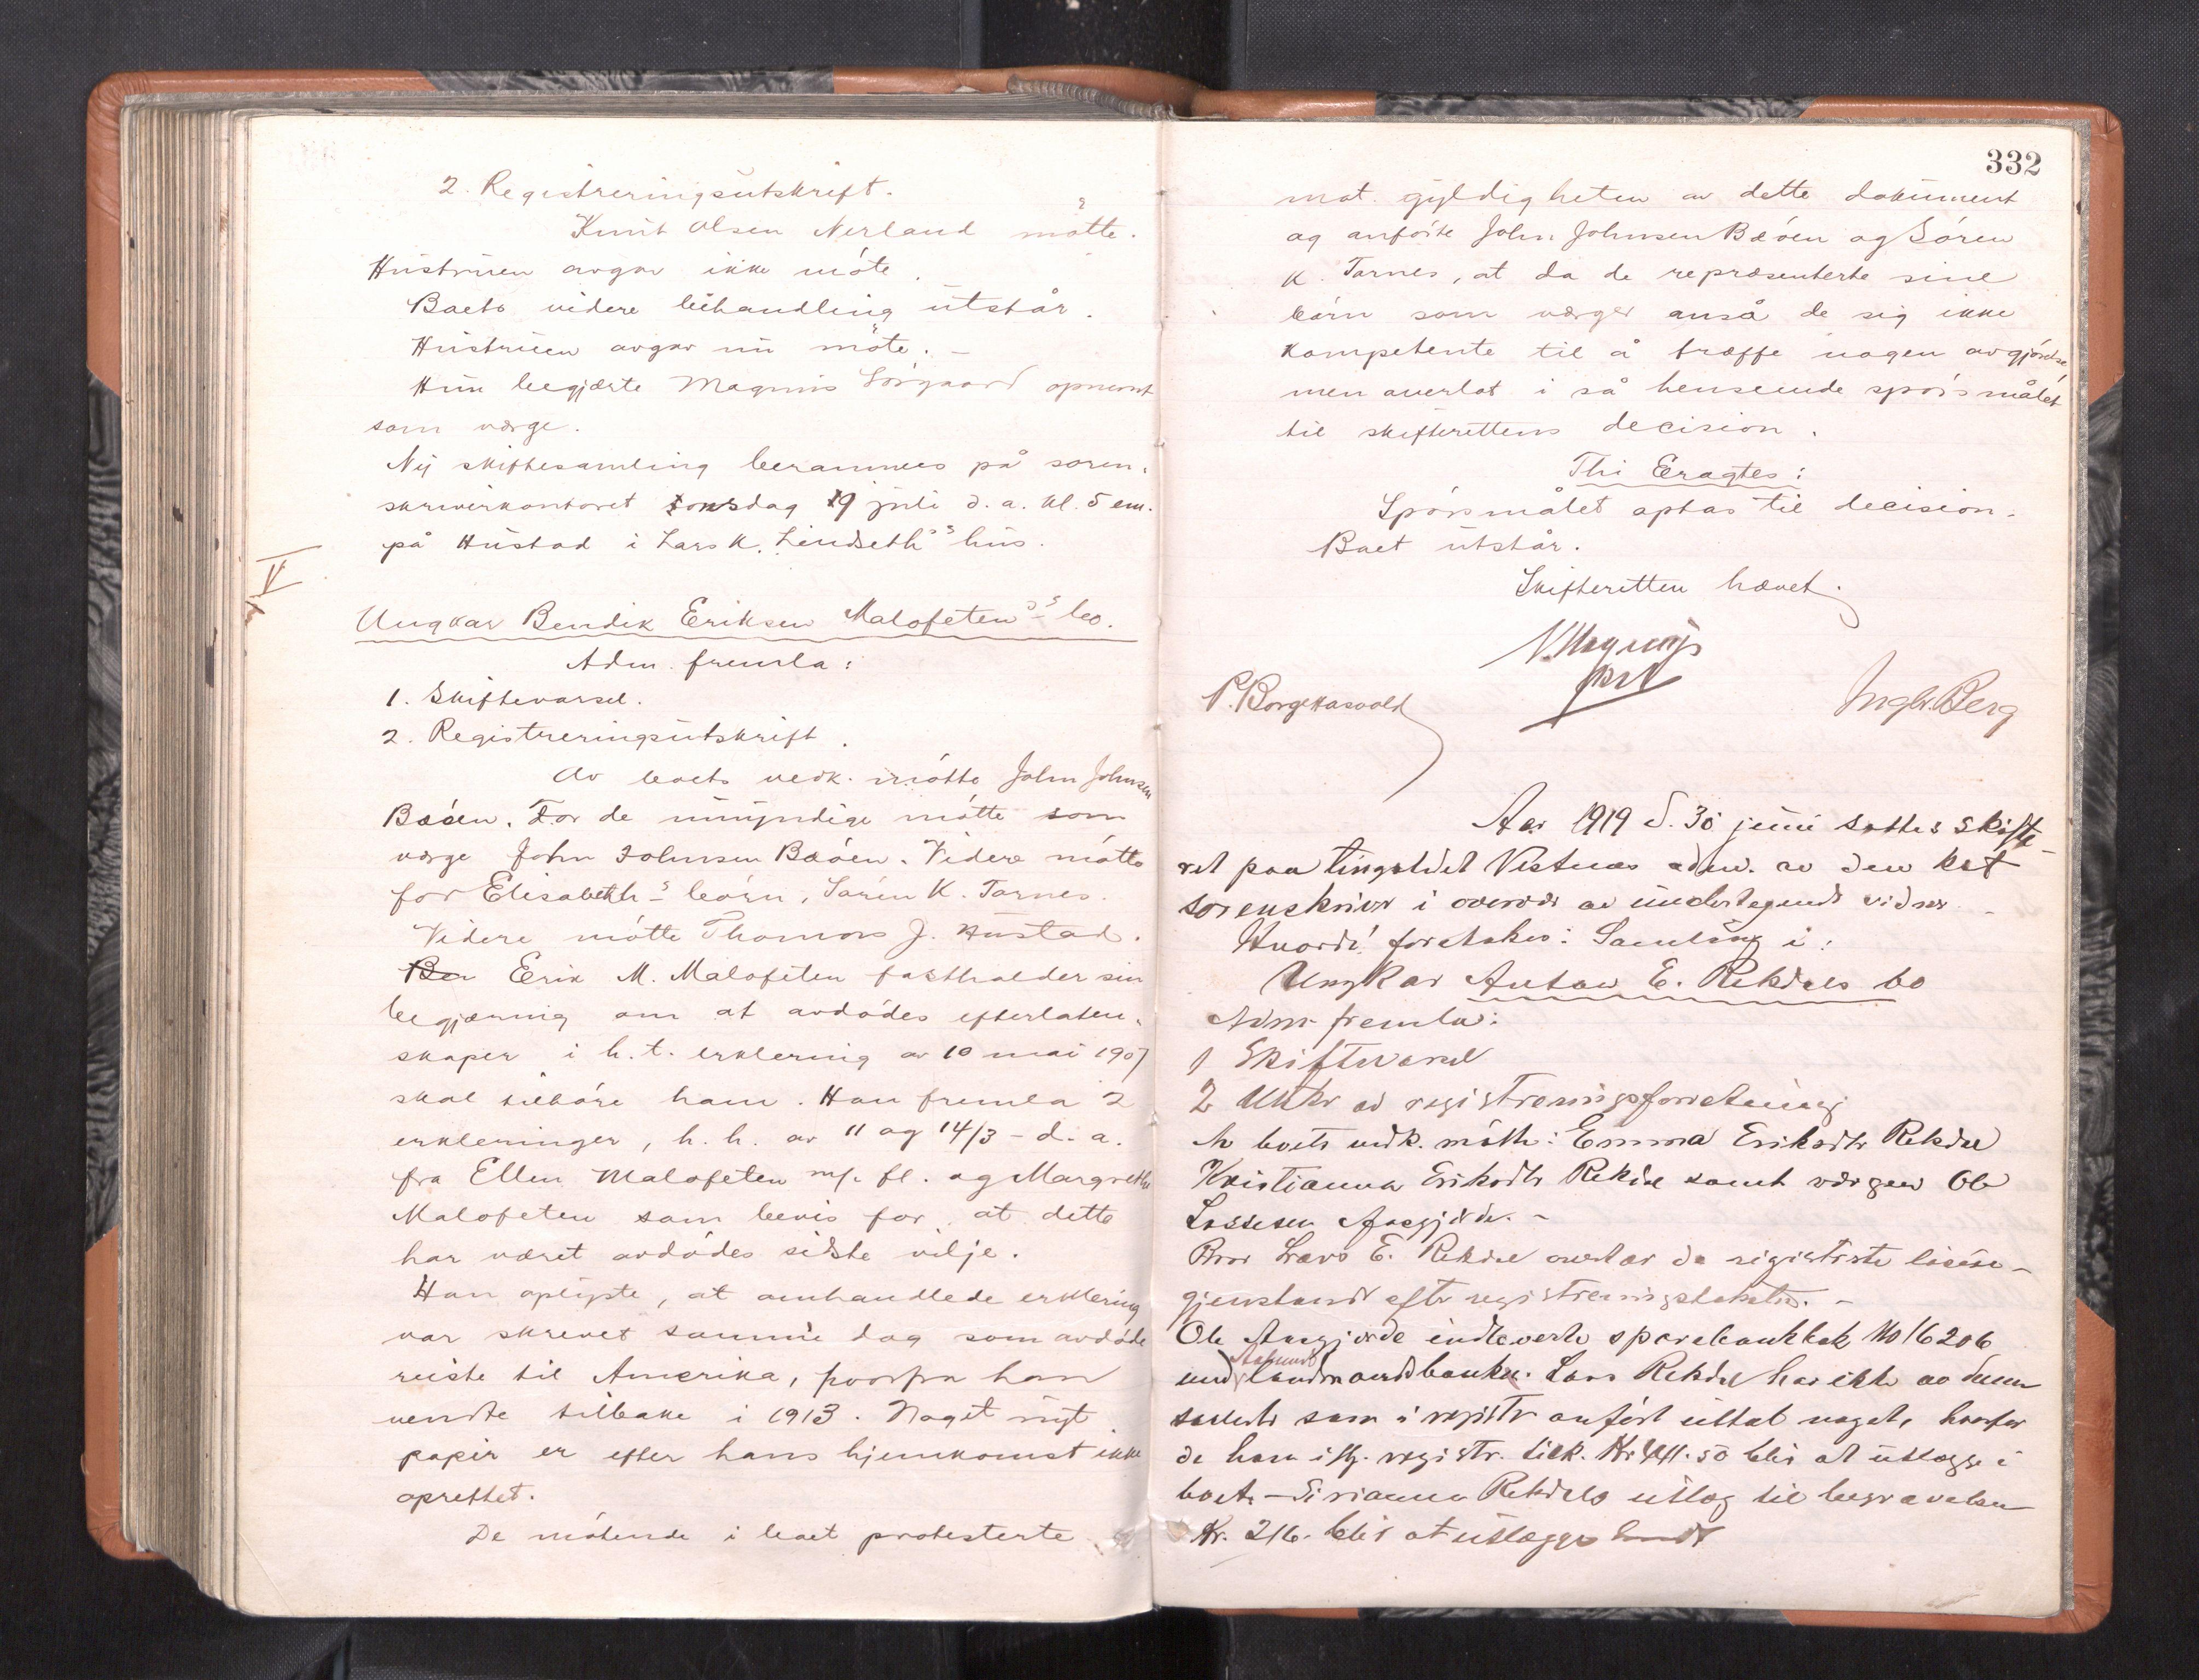 2. Registreringsutskrift.
Knut Olsen Nerland møtte.
Hustruen avgav ikke møte.
Boets videre behandling utstår.
Hustruen avgav nu møte. –
Hun begjærte Magnus Sørgaard opnevnt
som værge.
Ny skiftesamling berammes på soren-
skriverkontoret onsdag 9 juli d. a. kl. 5 em.
på Hustad i Lars K. Lindseths hus.
V
Ungkar Bendik Eriksen Malofetens bo.
Adm. fremla:
1. Skiftevarsel.
2. Registreringsutskrift.
Av boets vedk. møtte John Johnsen
Bøen. For de umyndige møtte som
værge John Johnsen Bøen. Videre møtte
for Elisabeths børn, Søren K. Tornes.
Videre møtte Thomas J. Hustad.
Erik M. Malofeten fastholder sin
begjæring om at avdødes efterladen-
skaper i h. t. erklering av 10 mai 1907
skal tilhøre ham. Han fremla 2
erkleringer, h. h. av 11 og 14/3 – d. a.
fra Ellen Malofeten m. fl. og Margrethe
Malofeten som bevis for, at dette
har været avdødes sidste vilje.
Han oplyste, at omhandlede erklering
var skrevet samme dag som avdøde
reiste til Amerika, hvorfra han
vendte tilbake i 1913. Noget nyt
papir er efter hans hjemkomst ikke
oprettet.
De møtende i boet protesterte
332
mot gyldigheten av dette dokument
og anførte John Johnsen Bøen og Søren
K. Tornes, at da de repræsenterte sine
børn som værger anså de sig ikke
kompetente til å træffe nogen avgjørelse
men overlot i så henseende spørsmålet
til skifterettens decision.
Thi Eragtes:
Spørsmålet optas til decision.
Boet utstår.
Skifteretten hævet.
P. Borgekasvold
Ingbr. Berg
Aar 1919 d. 30 juni sattes skifte-
ret paa tingstedet Vestnes adm. av den kst
sorenskriver i overvær av undertegnede vidner. –
Hvorda foretokes: Samling i:
Ungkar Anton E. Rekdals bo
Adm. fremla:
1 Skiftevarsel
2 Utskr av registreringsforretning
Av boets vedk. møtte: Emma Eriksdtr Rekdal
Kristianna Eriksdtr Rekdal samt værgen Ole
Lassesen . –
Bror Lars E. Rekdal overtar de registrerte løsøre-
gjenstande efter registreringstaksten. –
Ole indleverte sparebankbok No 16206
med landmandsbanken. Lars Rekdal har ikke av denne
som i registr anført uttat noget, hvorfor
de ham ifg. registr. tilk. Kr. 50 blir at utlægge i
boet. – Rekdals utlæg til begravelsen
Kr. 216. blir at utlægge